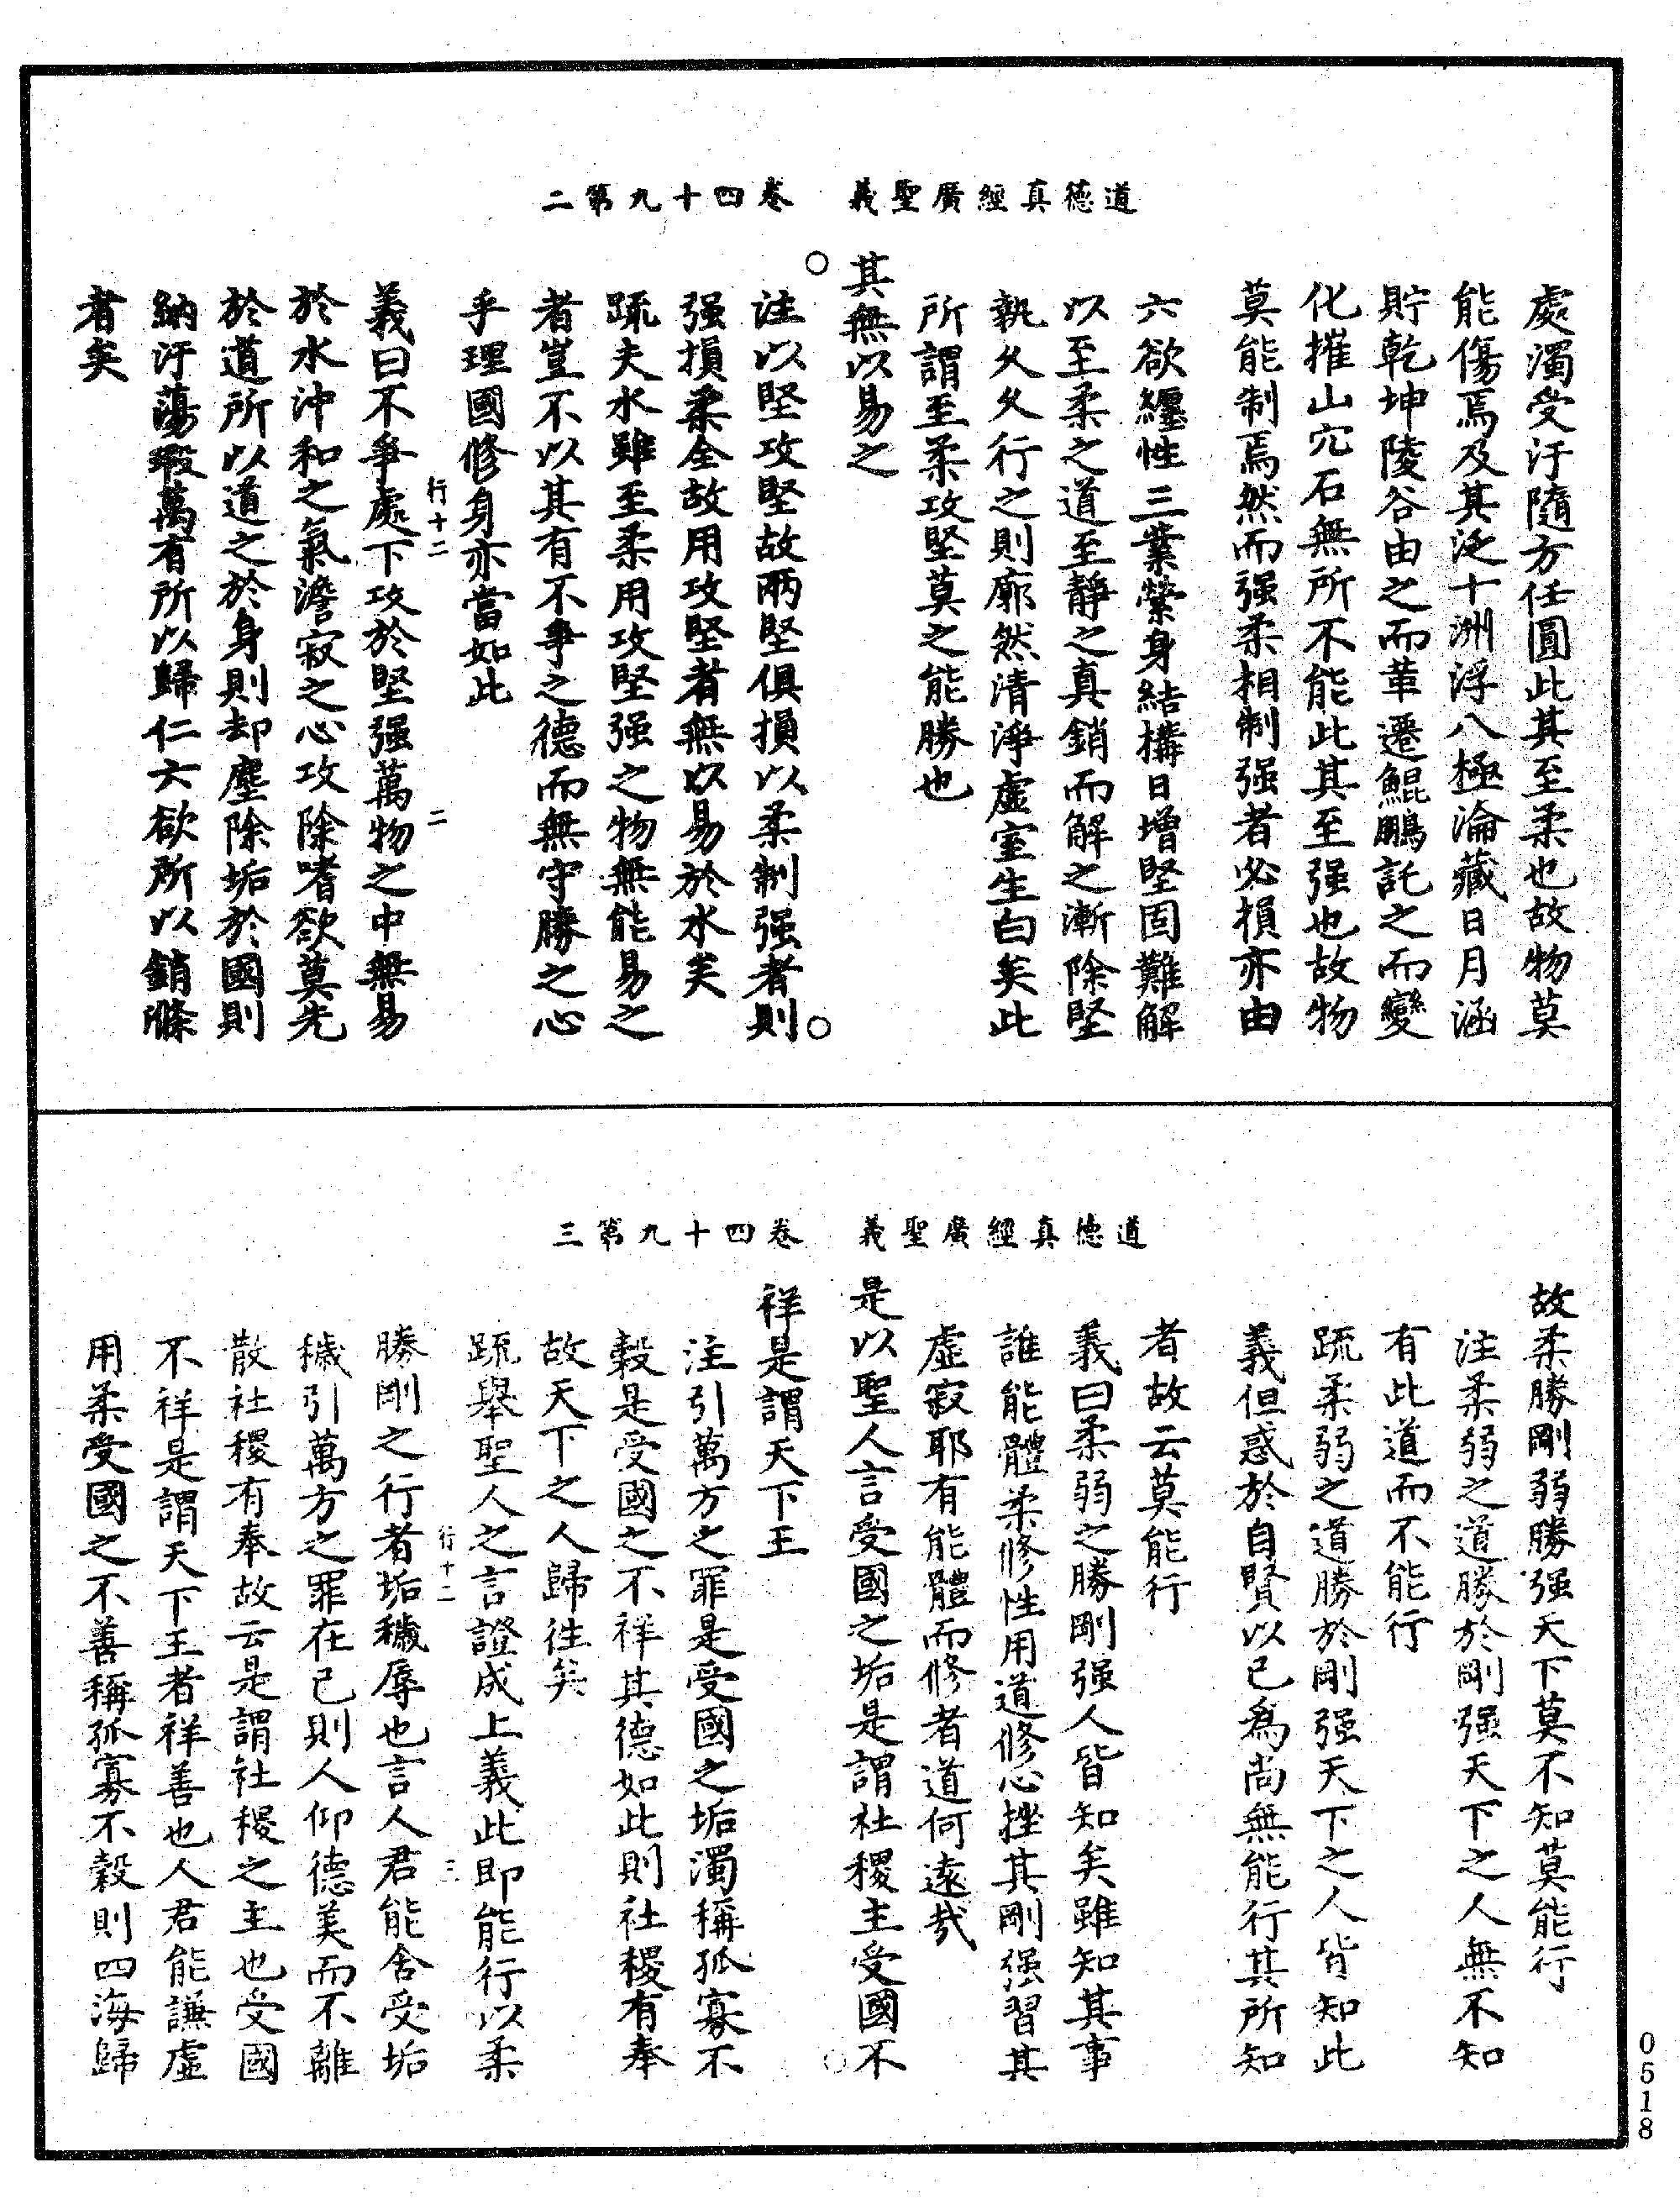 道德真經廣聖義　卷四十九第二
處濁受汙隨方任圓此其至柔也故物莫
能傷焉及其泛十洲浮八極淪藏日月涵
貯乾坤陵谷由之而革遷鯤鵬託之而變
化摧山穴石無所不能此其至强也故物
莫能制焉然而强柔相制强者必損亦由
六欲纏性三業縈身結構日增堅固難解
以至柔之道至靜之真銷而解之漸除堅
執久久行之則廓然清淨虛室生白矣此
所謂至柔攻堅莫之能勝也
其無以易之
注以堅攻堅故兩堅俱損以柔制强者則
强損柔全故用攻堅者無以易於水矣
䟽夫水雖至柔用攻堅强之物無能易之
者豈不以其有不爭之德而無守勝之心
乎理國修身亦當如此
行十二　二
義曰不爭處下攻於堅强萬物之中無易
於水沖和之氣澹寂之心攻除嗜欲莫先
於道所以道之於身則却塵除垢於國則
納汙蕩瑕萬有所以歸仁六欲所以銷滌
者矣
道德真經廣聖義　卷四十九第三
故柔勝剛弱勝强天下莫不知莫能行
注柔弱之道勝於剛强天下之人無不知
有此道而不能行
䟽柔弱之道勝於剛强天下之人皆知此
義但惑於自賢以已為尚無能行其所知
者故云莫能行
義曰柔弱之勝剛强人皆知矣雖知其事
誰能體柔修性用道修心挫其剛强習其
虛寂耶有能體而修者道何遠哉
是以聖人言受國之垢是謂社稷主受國不
祥是謂天下王
注引萬方之罪是受國之垢濁稱孤寡不
穀是受國之不祥其德如此則社稷有奉
故天下之人歸往矣
䟽舉聖人之言證成上義此即能行以柔
行十二　三
勝剛之行者垢穢辱也言人君能含受垢
穢引萬方之罪在己則人仰德美而不離
散社稷有奉故云是謂社稷之主也受國
不祥是謂天下王者祥善也人君能謙虛
用柔受國之不善稱孤寡不穀則四海歸
0518